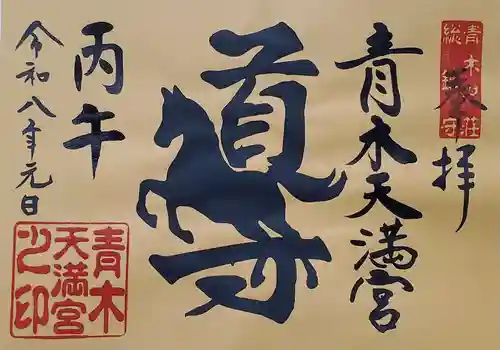 奉拝
青木荘
総鎮守
青木天満宮
導
丙午
令和八年元日
青木
天満宮
之印